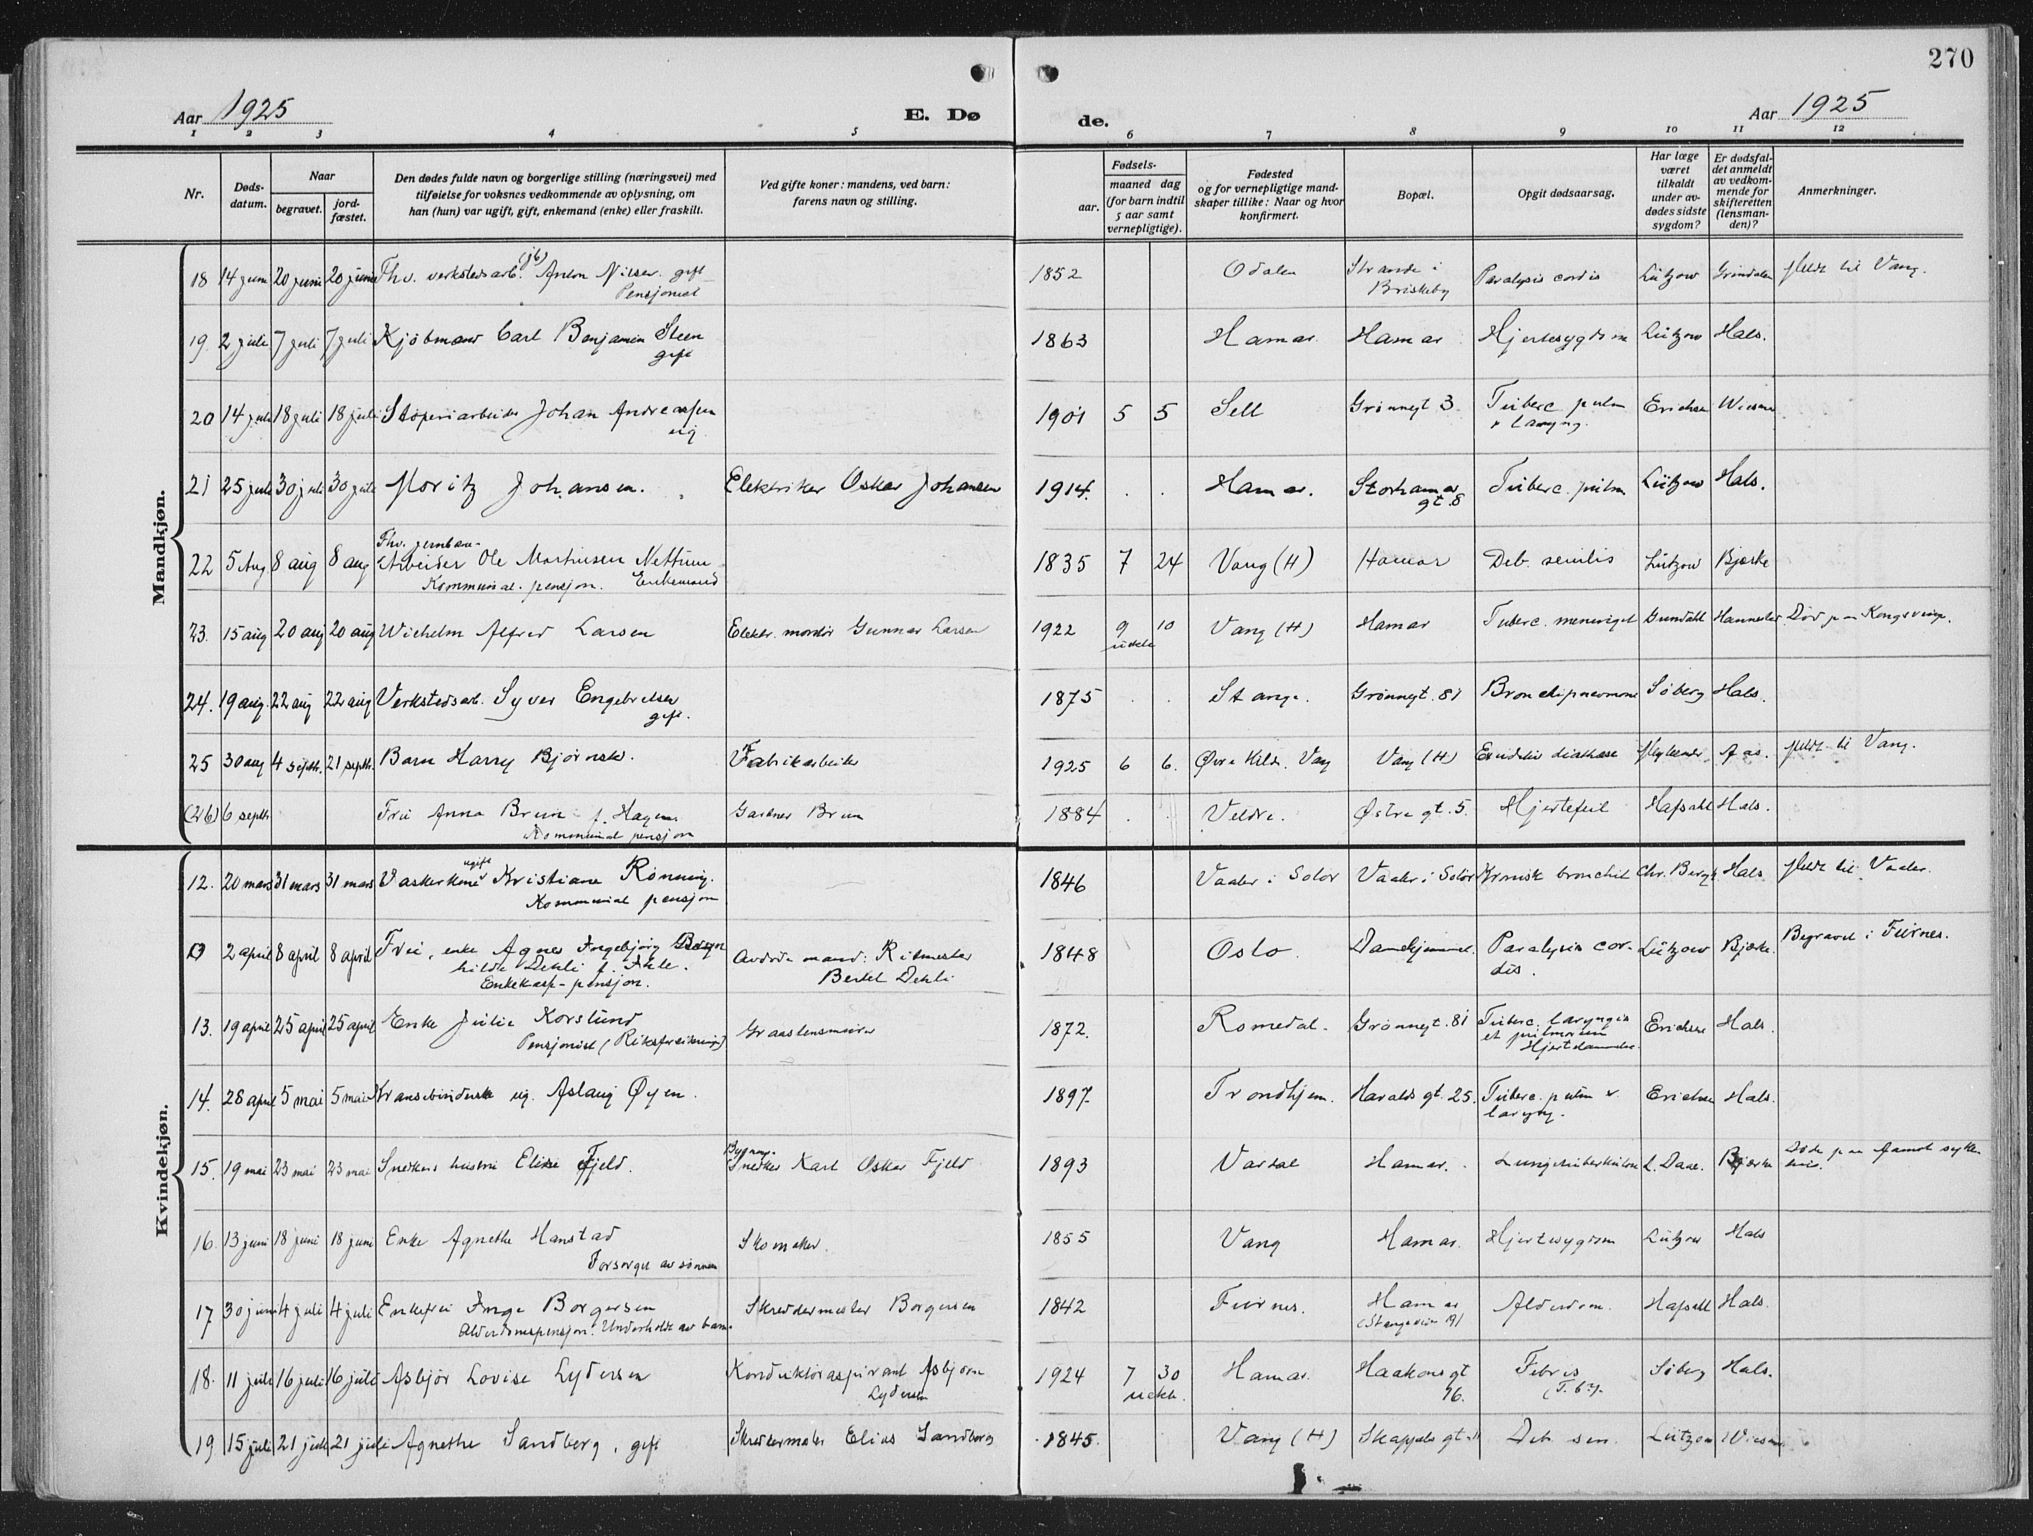 270
Aar 1925
E. Dø
de.
Aar 1925
1 2 3 4 5 6 7 8 9 10 11 12
Nr.
Døds-
datum.
Naar
begravet.
jord-
fæstet.
Den dødes fulde navn og borgerlige stilling (næringsvei) med
tilføielse for voksnes vedkommende av oplysning, om
han (hun) var ugift, gift, enkemand (enke) eller fraskilt.
Ved gifte koner: mandens, ved barn:
farens navn og stilling.
Fødsels-
aar.
maaned dag
(for barn indtil
5 aar samt
vernepligtige).
Fødested
og for vernepligtige mand-
skaper tillike: Naar og hvor
konfirmert.
Bopæl.
Opgit dødsaarsag.
Har læge
været
tilkaldt
under av-
dødes sidste
sygdom?
Er dødsfal-
det anmeldt
av vedkom-
mende for
skifteretten
(lensman-
den)?
Anmerkninger.
Mandkjøn.
18 14 juni 20 juni 20 juni Fhv. verkstedsarb. Anton Nilsen. gift 1852 Odalen Strande i Paralysis cordis Lützow Grindalen Meldt til Vang.
Pensjonist Briskeby
19. 2 juli 7 juli 7 juli Kjøbmand Carl Benjamin Steen 1863 Hamar. Hamar Hjertesygdom Lützow Hals.
gift
20 14 juli 18 juli 18 juli Støperiarbeider Johan Andreassen 1901 5 5 Sell Grønnegt 3. Tuberc. pulm Erichsen
ug. & laryng.
21 25 juli 30 juli 30 juli Moritz Johansen. Elektriker Oskar Johansen 1914. Hamar. Storhamar Tuberc. pulm Lützow Hals.
gt. 8
Fhv. jernban-
22 5 Aug 8 aug 8 aug Arbeider Ole Martinsen Nettum 1835 7 24 Vang (H) Hamar Deb. senilis Lützow Bjerke
Kommunal. pensjon. Enkemand
23. 15 aug 20 aug 20 aug Wilhelm Alfred Larsen Elektr. montør Gunnar Larsen 1922 9 10 Vang (H) Hamar Tuberc. meningit Død paa Kongsvinger.
24. 19 aug. 22 aug 22 aug Verkstedsarb. Syver Engebretsen 1875 Stange. Grønnegt. 81 Bronchipneumoni Søberg Hals.
gift.
25 30 aug 4 septb. 21 septb. Barn Harry Bjørnstad. Fabrikarbeider 1925 6 6. Øvre Kilde. Vang Vang (H) Exudativ diathese Aas. Meldt til Vang.
(26) 6 septb Fru Anna Brun f. Hagen. Gartner Brun 1884 Veldre. Østre gt. 5. Hjertefeil Hafsahl Hals.
Kommunal pensjon
Kvindekjøn.
12. 20 mars 31 mars 31 mars Vaskerkone ugift Kristiane Rønning. 1846 Vaaler i Solør Vaaler i Solør Kronisk bronchit Chr. Hals Meldt til Vaaler.
Kommunal pensjon
2 april 8 april 8 april Frue, enke Agnes Ingebjørg Avdøde mand: Ritmester 1848 Oslo. Paralysis cor- Lützow Bjerke. Begravet i Furnes.
hilde Dehli f. Enkekasse-pensjon. Bertel Dehli dis.
13. 19 april 25 april 25 april Enke Julie Korslund Graastensmurer 1872. Romedal. Grønnegt. 81 Tuberc. laryngis Erichsen Hals.
Pensjonist (Riksforsikring) et pulmonum
14. 28 april 5 mai 5 mai Kransebinderske ug. Aslaug Øyen. 1897. Trondhjem. Haralds gt. 25. Tuberc. pulm & Erichsen Hals.
laryng.
15. 19 mai 23 mai 23 mai Snekkers hustru Elise Fjeld. Bygnings. Snekker Karl Oskar Fjeld 1893 Vardal Hamar. Lungetuberkulose L. Daae. Bjerke Døde paa Aamot syke-
hus.
16. 13 juni 18 juni 18 juni Enke Agnethe Hanstad Skomaker. 1855 Vang Hamar. Hjertesygdom Lützow Hals
Forsørget av sønnen
17 30 juni 4 juli 4 juli Enkefru Inga Borgersen Skreddermester Borgersen 1842 Furnes. Hamar Alderdom. Hafsahl Hals.
Alderdomspensjon. Underholdt av barn. (Stangeveien 19)
18. 11 juli 16 juli 16 juli Asbjør Lovise Lydersen Konduktøraspirant Asbjørn 1924 7 30 Hamar. Haakonsgt Febris Søberg Hals.
Lydersen 16. (T.b?).
19 15 juli 21 juli 21 juli Agnethe Sandberg, gift Skreddermester Elias Sandberg 1845. Vang (H) Skappels gt. Deb. sen. Lützow